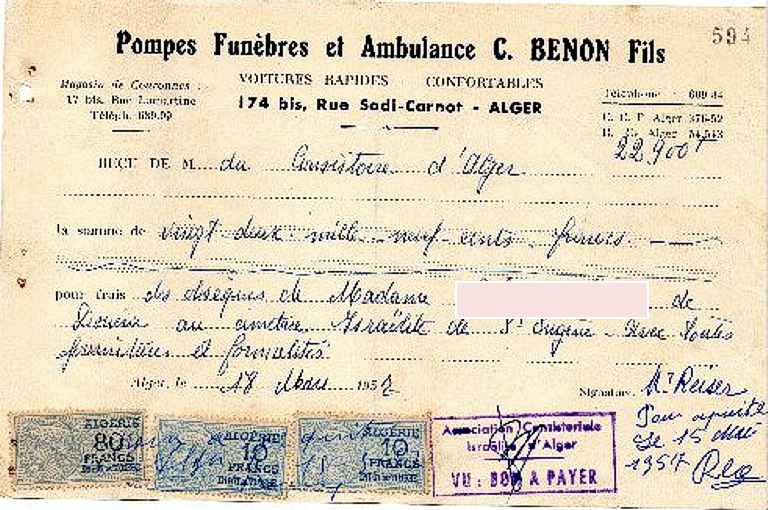 594
Pompes Funèbres et Ambulance C. BENON Fils
VOITURES RAPIDES - CONFORTABLES
174 bis, Rue Sadi-Carnot - ALGER
Magasin de Couronnes :
17 bis, Rue Lamartine
Téléph. 639.99
Téléphone : 609-44
C. C. P. Alger 376-52
R. C. Alger 54.543
22.900F
REÇU DE M. du Consistoire d'Alger
la somme de vingt deux mille neuf cents francs
pour frais des obsèques de Madame de
au cimetière Israélite de St Eugène - avec toutes
et formalités
Alger, le 18 Mars 1957
Signature, Mr Reiser
Pour acquit
Le 15 Mai
1957
ALGÉRIE
80
FRANCS
ALGÉRIE
10
FRANCS
DIMENSION
ALGÉRIE
10
FRANCS
DIMENSION
Association Consistoriale
Israélite d'Alger
VU : BON A PAYER